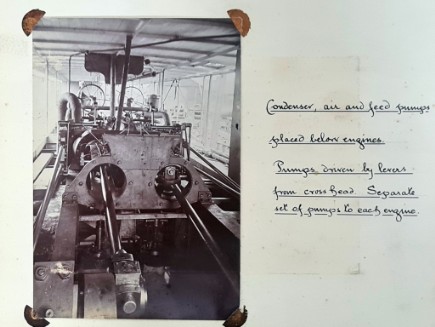 Condenser, air and feed pumps
placed below engines.
Pumps driven by levers
from cross head. Separate
set of pumps to each engine.